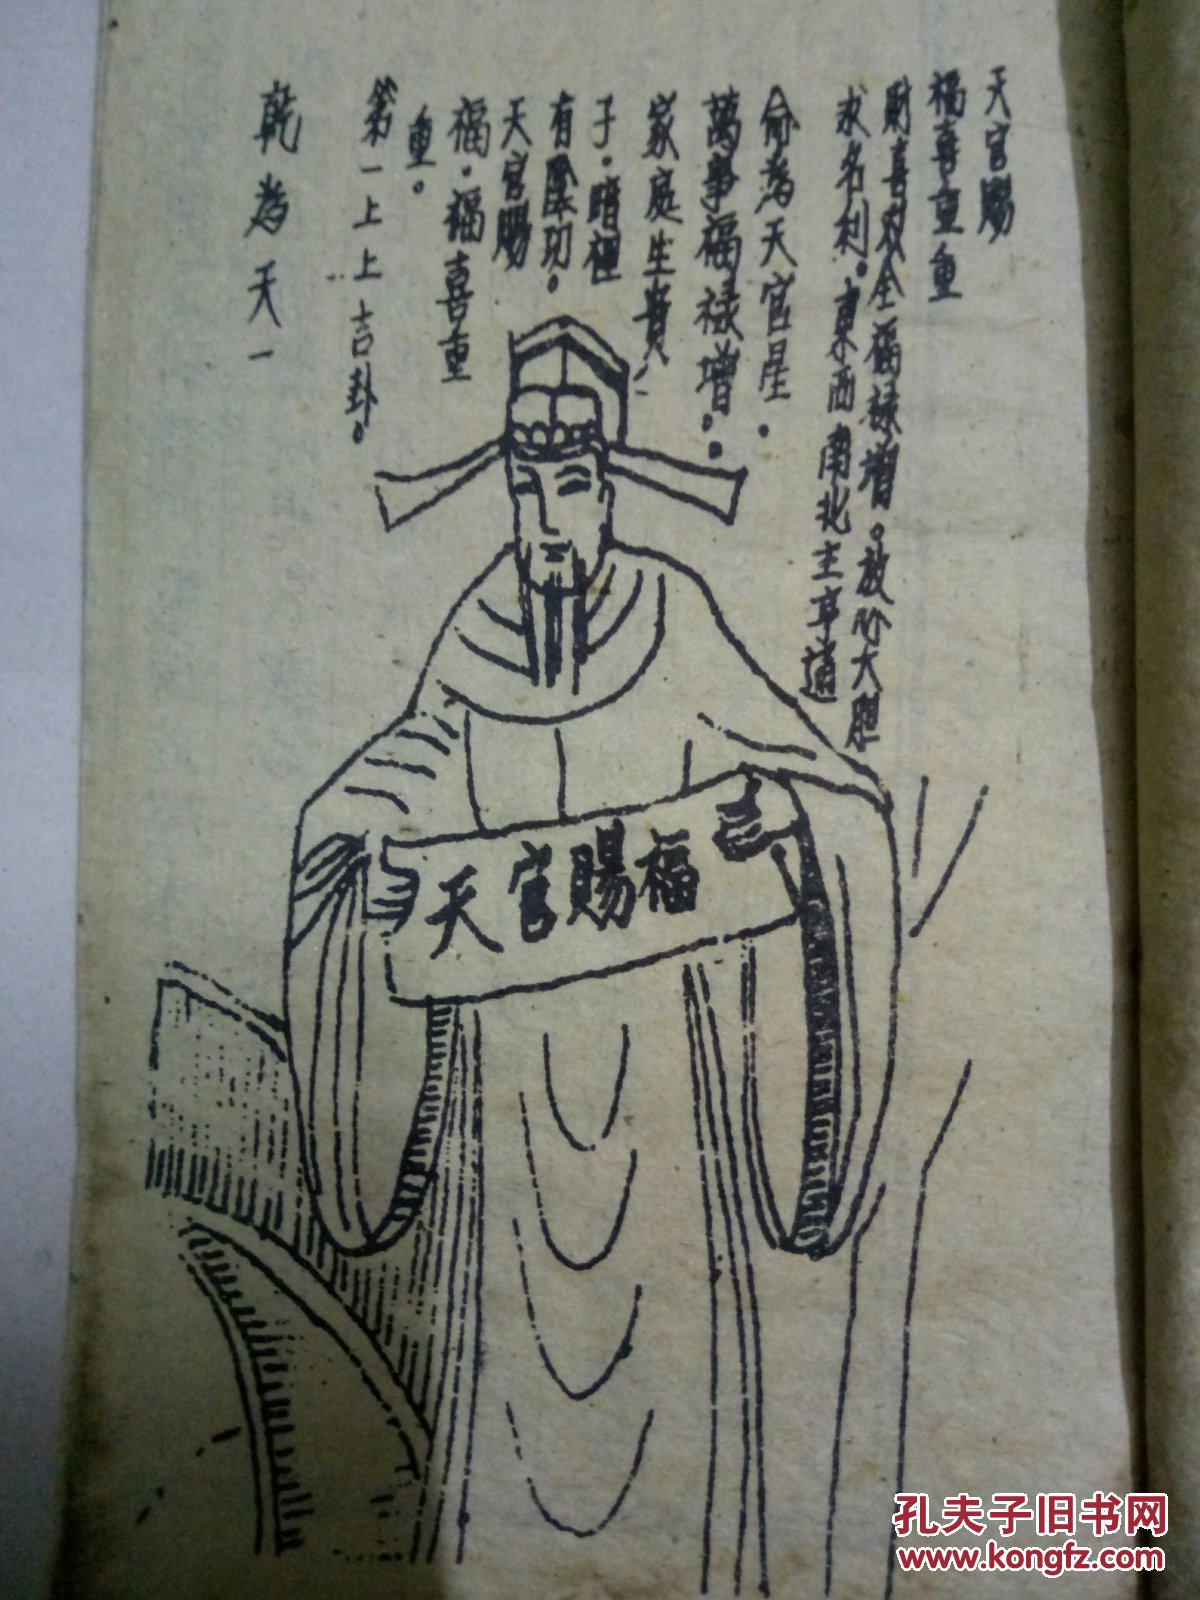 天官賜
福喜重重
財喜双全福祿增。放心大胆
求名利。東西南北主亨通
俞為天官星。
萬事福禄增。
家庭生貴
子。暗裡
有陰功。
天官賜
福。福喜重
重。
第一上上吉卦。
乾為天一
天官賜福
孔夫子旧书网
www.kongfz.com